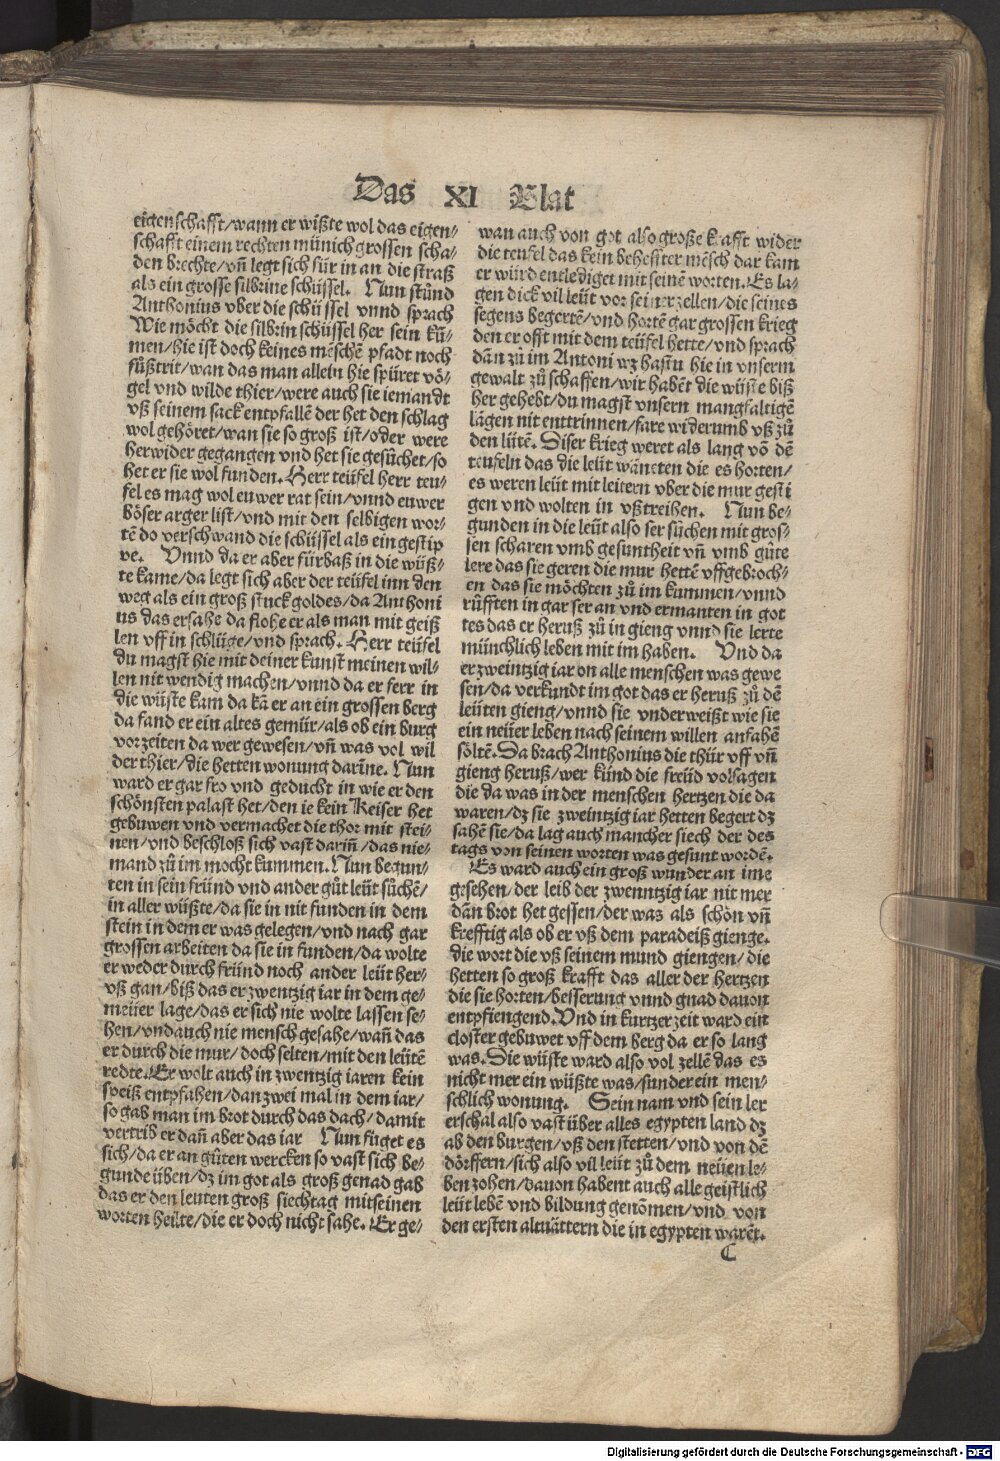 Das XI Blat
eigenschafft/wann er wißte wol das eigen⸗
schafft einem rechten münich grossen scha⸗
den brechte/vñ legt sich für in an die straß
als ein grosse silbrine schüssel. Nun stůnd
Anthonius vber die schüssel vnnd sprach
Wie möcht die silbrin schüssel her sein kũ⸗
men/hie ist doch keines mēschē pfadt noch
fůßtrit/wan das man allein hie spüret vö⸗
gel vnd wilde thier/were auch sie iemandt
vß seinem sack entpfallē der het den schlag
wol gehöret/wan sie so groß ist/oder were
herwider gegangen vnd het sie gesůchet/so
het er sie wol funden. Herr teüfel herr teu⸗
fel es mag wol euwer rat sein/vnnd euwer
böser arger list/vnd mit den selbigen wor⸗
tē do verschwand die schüssel als ein gestip
pe. Vnnd da er aber fürbaß in die wüß⸗
te kame/da legt sich aber der teüfel inn den
weg als ein groß stuck goldes/da Anthoni
us das ersahe da flohe er als man mit geiß
len vff in schlüge/vnd sprach. Herr teüfel
du magst hie mit deiner kunst meinen wil⸗
len nit wendig machen/vnnd da er ferr in
die wüste kam da kā er an ein grossen berg
da fand er ein altes gemür/als ob ein burg
vorzeiten da wer gewesen/vñ was vol wil
der thier/die hetten wonung dariñe. Nun
ward er gar fro vnd geducht in wie er den
schönsten palast het/den ie kein Keiser het
gebuwen vnd vermachet die thor mit stei⸗
nen/vnd beschloß sich vast dariñ/das nie⸗
mand zů im mocht kummen. Nun begun⸗
ten in sein fründ vnd ander gůt leüt sůchē/
in aller wüßte/da sie in nit funden in dem
stein in dem er was gelegen/vnd nach gar
grossen arbeiten da sie in funden/da wolte
er weder durch fründ noch ander leüt her⸗
vß gan/biß das er zwentzig iar in dem ge⸗
meüer lage/das er sich nie wolte lassen se⸗
hen/vnd auch nie mensch gesahe/wañ das
er durch die mur/doch selten/mit den leütē
redte. Er wolt auch in zwentzig iaren kein
speiß entpfahen/dan zwei mal in dem iar/
so gab man im brot durch das dach/damit
vertrib er dañ aber das iar Nun füget es
sich/da er an gůten wercken so vast sich be⸗
gunde üben/dz im got als groß genad gab
das er den leuten groß siechtag mit seinen
worten heilte/die er doch nicht sahe. Er ge⸗
wan auch von got also große krafft wider
die teufel das kein behefiter mēsch dar kam
er würd entlediget mit seinē worten. Es la⸗
gen dick vil leüt vor seiner zellen/die seines
segens begertē/vnd hortē gar grossen krieg
den er offt mit dem teüfel hette/vnd sprach
dañ zů im Antoni wz hastu hie in vnserm
gewalt zů schaffen/wir habēt die wüste biß
her gehebt/du magst vnsern mangfaltigē
lägen nit enttrinnen/fare widerumb vß zů
den lütē. Diser krieg weret als lang vō dē
teufeln das die leüt wäneten die es horten/
es weren leüt mit leitern vber die mur gesti
gen vnd wolten in vßtreiben. Nun be⸗
gunden in die leüt also ser sůchen mit gros⸗
sen scharen vmb gesuntheit vñ vmb gůte
lere das sie geren die mur hettē vffgebroch⸗
en das sie möchten zů im kummen/vnnd
růfften in gar ser an vnd ermanten in got
tes das er heruß zů in gieng vnnd sie lerte
münchlich leben mit im haben. Vnd da
er zweintzig iar on alle menschen was gewe
sen/da verkundt im got das er heruß zů dē
leüten gieng/vnnd sie vnderweißt wie sie
ein neüer leben nach seinem willen anfahē
söltē. Da brach Anthonius die thür vff vñ
gieng heruß/wer künd die freüd volsagen
die da was in der menschen hertzen die da
waren/dz sie zweintzig iar hetten begert dz
sahē sie/da lag auch mancher siech der des
tags von seinen worten was gesunt wordē.
Es ward auch ein groß wunder an ime
gesehen/der leib der zwenntzig iar nit mer
dañ brot het gessen/der was als schön vñ
krefftig als ob er vß dem paradeiß gienge.
die wort die vß seinem mund giengen/die
hetten so groß krafft das aller der hertzen
die sie horten/besserung vnnd gnad dauon
entpfiengend. Vnd in kurtzer zeit ward ein
closter gebuwet vff dem berg da er so lang
was. Die wüste ward also vol zellē das es
nicht mer ein wüßte was/sunder ein men⸗
schlich wonung. Sein nam vnd sein ler
erschal also vast über alles egypten land dz
ab den burgen/vß den stetten/vnd von dē
dörffern/sich also vil leüt zů dem neüen le⸗
ben zohen/dauon habent auch alle geistlich
leüt lebē vnd bildung genömen/vnd von
den ersten altuättern die in egypten warēt.
C
Digitalisierung gefördert durch die Deutsche Forschungsgemeinschaft - DFG